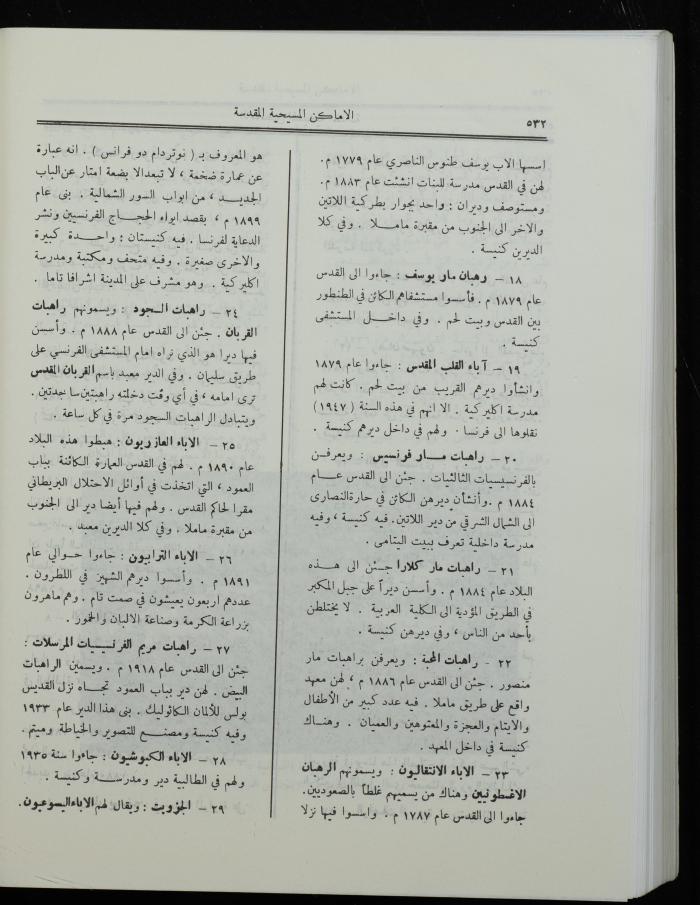 الاماكن المسيحية المقدسة
٥٣٢
اسسها الاب يوسف طنوس الناصري عام ١٧٧٩ م.
لهن في القدس مدرسة للبنات انشئت عام ١٨٨٣ م.
ومستوصف وديران : واحد بجوار بطركية اللاتين
والاخر الى الجنوب من مقبرة ماملا . وفي كلا
الديرين كنيسة .
١٨ – رهبان مار يوسف : جاءوا الى القدس
عام ١٨٧٩ م . فأسسوا مستشفاهم الكائن في الطنطور
بين القدس وبيت لحم . وفي داخل المستشفى
كنيسة .
١٩ – آباء القلب المقدس : جاءوا عام ١٨٧٩
وانشأوا ديرهم القريب من بيت لحم . كانت لهم
مدرسة اكليركية . الا انهم في هذه السنة (١٩٤٧)
نقلوها الى فرنسا . ولهم في داخل ديرهم كنيسة .
٢٠ – راهبات مار فرنسيس : ويعرفن
بالفرنسيسيات الثالثيات . جئن الى القدس عام
١٨٨٤ م . وأنشأن ديرهن الكائن في حارة النصارى
الى الشمال الشرقي من دير اللاتين. فيه كنيسة ، وفيه
مدرسة داخلية تعرف ببيت اليتامى .
٢١ – راهبات مار كلارا جئن الى هذه
البلاد عام ١٨٨٤ م . وأسسن ديراً على جبل المكبر
في الطريق المؤدية الى الكلية العربية . لا يختلطن
بأحد من الناس ، وفي ديرهن كنيسة .
٢٢ – راهبات المحبة : ويعرفن براهبات مار
منصور . جئن الى القدس عام ١٨٨٦ م ، لهن معهد
واقع على طريق ماملا . فيه عدد كبير من الأطفال
والايتام والعجزة والمعتوهين والعميان . وهناك
كنيسة في داخل المعهد .
٢٣ – الاباء الانتقاليون : ويسمونهم الرهبان
الاغسطونيين وهناك من يسميهم غلطاً بالصعوديين.
جاءوا الى القدس عام ١٧٨٧ م . واسسوا فيها نزلا
هو المعروف بـ ( نوتردام دو فرانس ) . انه عبارة
عن عمارة ضخمة ، لا تبعد الا بضعة امتار عن الباب
الجديد ، من ابواب السور الشمالية . بنى عام
١٨٩٩ م ، بقصد ايواء الحجاج الفرنسيين ونشر
الدعاية لفرنسا . فيه كنيستان : واحدة كبيرة
والاخرى صغيرة . وفيه متحف ومكتبة ومدرسة
اكليركية . وهو مشرف على المدينة اشرافا تاما .
٢٤ – راهبات السجود : ويسمونهم راهبات
القربان . جئن الى القدس عام ١٨٨٨ م . وأسسن
فيها ديرا هو الذي نراه امام المستشفى الفرنسي على
طريق سليمان . وفي الدير معبد باسم القربان المقدس
ترى امامه ، في أي وقت دخلته راهبتين ساجدتين .
ويتبادل الراهبات السجود مرة في كل ساعة .
٢٥ – الاباء العازريون : هبطوا هذه البلاد
عام ١٨٩٠ م . لهم في القدس العمارة الكائنة بباب
العمود ، التي اتخذت في أوائل الاحتلال البريطاني
مقرا لحاكم القدس . ولهم فيها أيضا دير الى الجنوب
من مقبرة ماملا . وفي كلا الديرين معبد .
٢٦ – الاباء الترابيون : جاءوا حوالي عام
١٨٩١ م . وأسسوا ديرهم الشهير في اللطرون .
عددهم اربعون يعيشون في صمت تام . وهم ماهرون
بزراعة الكرمة وصناعة الالبان والخمور .
٢٧ – راهبات مريم الفرنسيسيات المرسلات :
جئن الى القدس عام ١٩١٨ م . ويسمين الراهبات
البيض . لهن دير بباب العمود تجاه نزل القديس
بولس للألمان الكاثوليك . بنى هذا الدير عام ١٩٣٣
وفيه كنيسة ومصنع للتصوير والخياطة وميتم .
٢٨ – الاباء الكبوشيون : جاءوا سنة ١٩٣٥
ولهم في الطالبية دير ومدرسة وكنيسة .
٢٩ – الجزويت : ويقال لهم الاباء اليسوعيون.